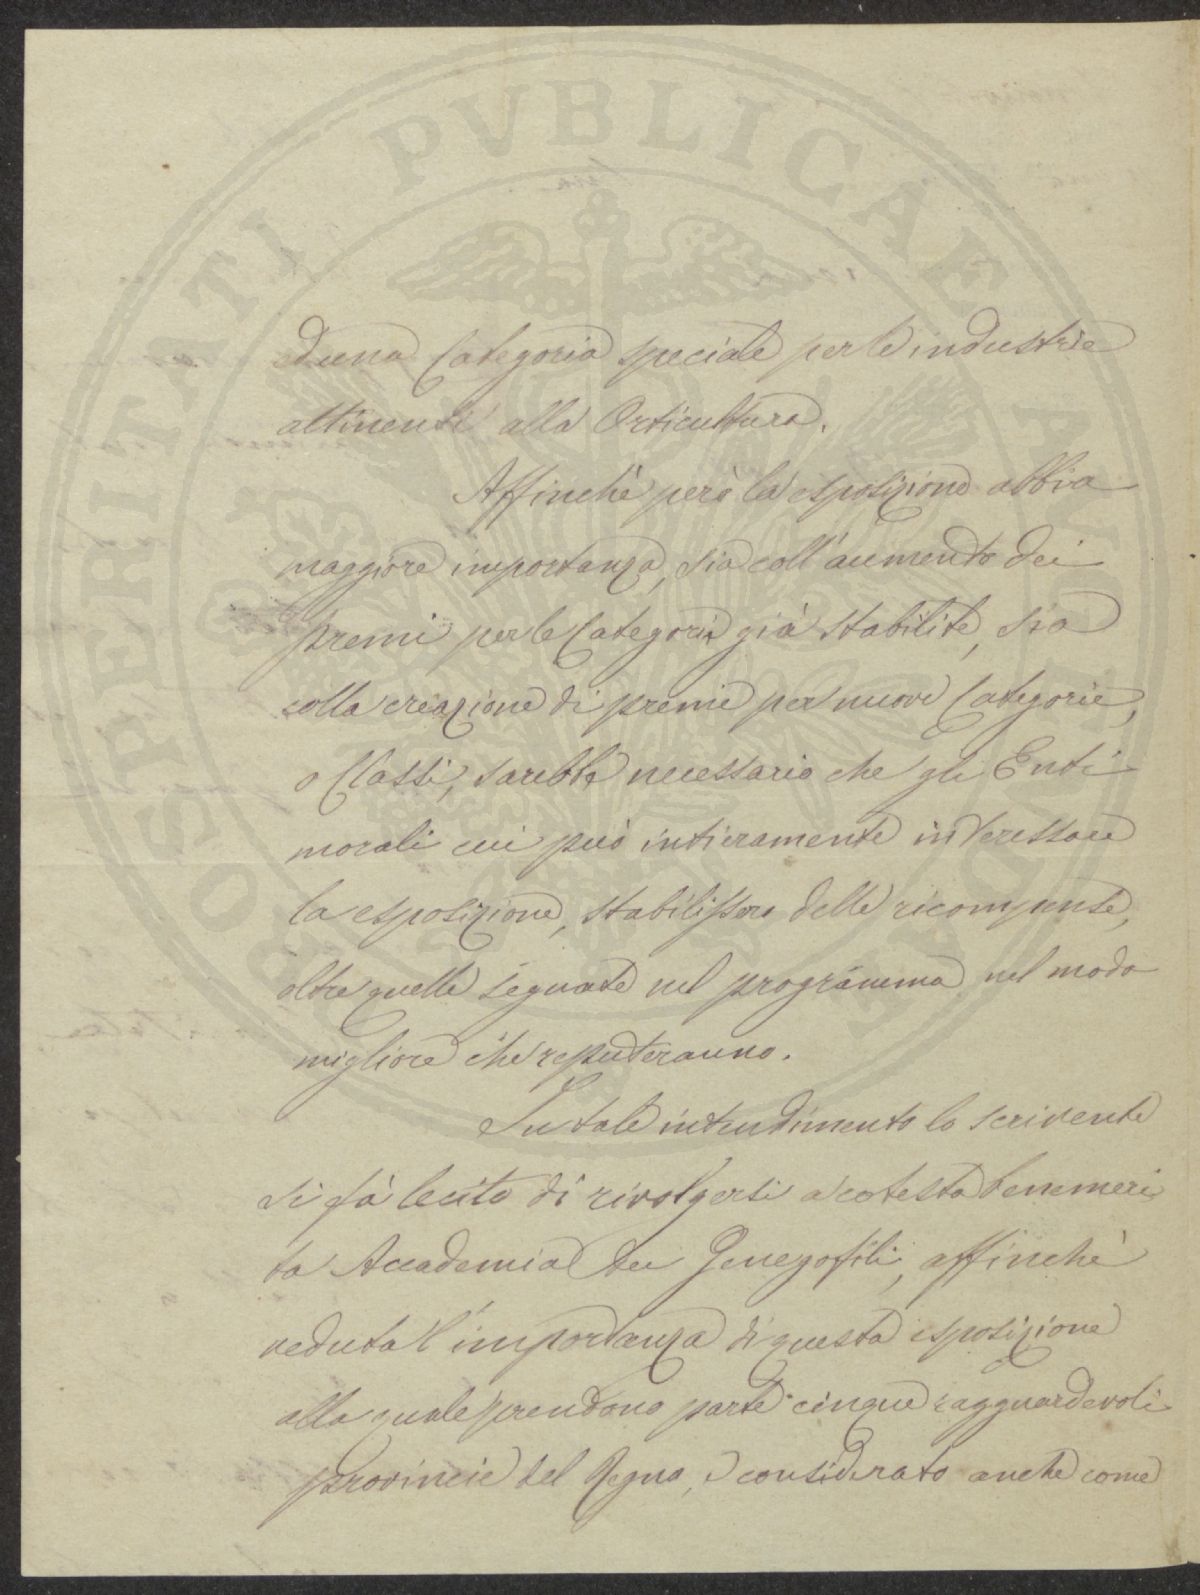 PROSPERITATI PVBLICAE AVGENDAE
ed una Categoria speciale per le industrie
attinenti alla Orticultura.
Affinchè però la esposizione abbia
maggiore importanza, sia coll'aumento dei
premi per le Categorie già stabilite, sia
colla creazione di premi per nuove Categorie,
o Classi, sarebbe necessario che gli Enti
morali cui può intieramente interessare
la esposizione, stabilissero delle ricompense,
oltre quelle segnate nel programma nel modo
migliore che reputeranno.
In tale intendimento lo scrivente
si fà lecito di rivolgersi a cotesta benemeri
ta Accademia dei Georgofili, affinchè
veduta l'importanza di questa esposizione
alla quale prendono parte cinque ragguardevoli
provincie del Regno, e considerato anche come